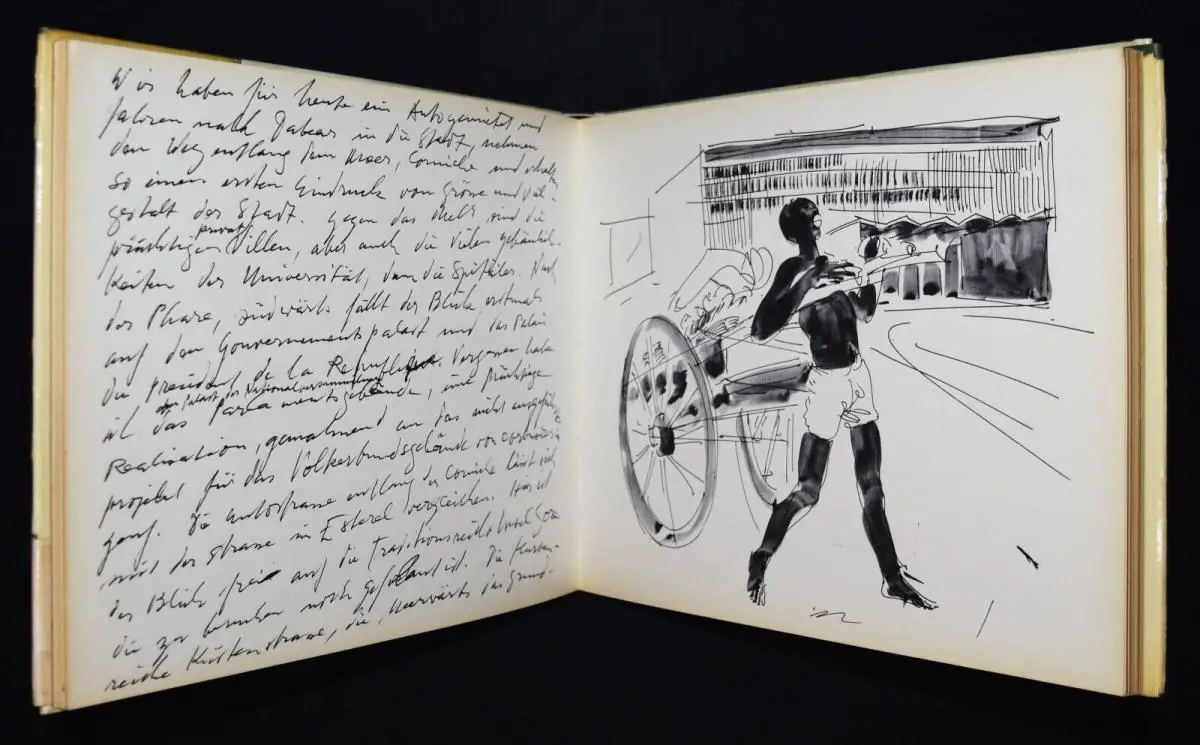 Wir haben für heute ein Auto gemietet und
fahren nach Dakar in die Stadt, nehmen
den Weg entlang dem Meer, Corniche und erhalten
so einen ersten Eindruck von Grösse und Viel-
gestalt der Stadt. Gegen das Meer sind die
prächtigen privat Villen, aber auch die vielen
keiten der Universität, dann die Spitäler. Nach
der Phare, südwärts fällt der Blick erstmals
auf den Gouvernementspalast und das Palais
du President de la Republique. Vergessen habe
ich das Parlamentsgebäude, eine prächtige
den Palast der Nationalversammlung
Realisation, gemahnend an das nicht ausgeführte
projekt für das Völkerbundsgebäude von Corbusier in
Genf. Die Autostrasse entlang der Corniche lässt sich
mit der Strasse im Esterel vergleichen. Hier ist
der Blick frei auf die Traditionsreiche Insel Gorée
die zu besuchen noch geplant ist. Die
reiche Küstenstrasse, die, Meerwärts das Grund-